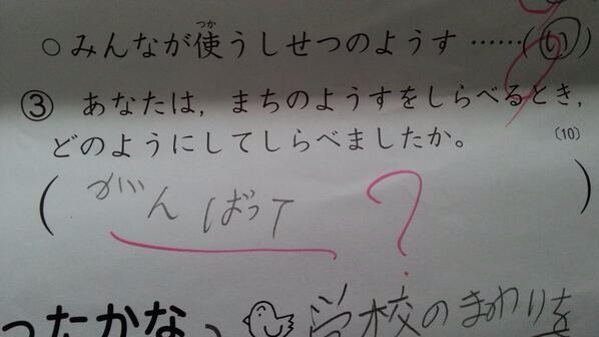 ○ みんなが使うしせつのようす ……( い )
つか
③ あなたは，まちのようすをしらべるとき，
どのようにしてしらべましたか。
(10)
( がんばって )
?
ったかな
学校のまわりを